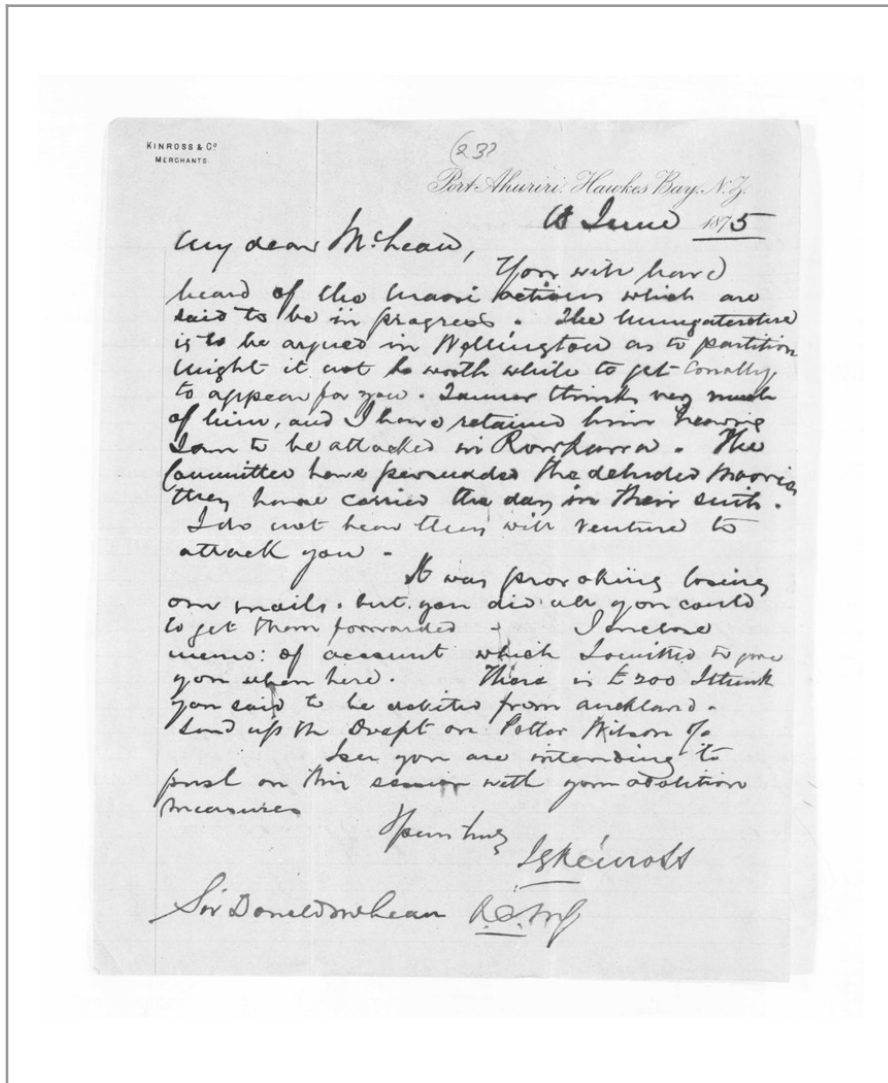 KINROSS & Co
MERCHANTS
(23)
Port Ahuriri, Hawkes Bay, N.Z.
June 1875
My dear McLean,
You will have
heard of the Maori actions which are
said to be in progress. The
is to be argued in Wellington as to partition
might it not be worth while to get Conolly
to appear for you. Tanner thinks very much
of him, and I have retained him hearing
I am to be attacked in . The
Committee have persuaded the deluded Maories
they have carried the day in their suits.
I do not hear they will venture to
attack you -
It was provoking losing
our mails. but you did all you could
to get them forwarded - I enclose
memo: of account which I omitted to give
you when here. There is £200 I think
you said to be debited from Auckland.
Send up the Draft on Potter Wilson
I see you are intending to
push on this session with your abolition
measures
Yours truly
Kinross
Sir Donald McLean